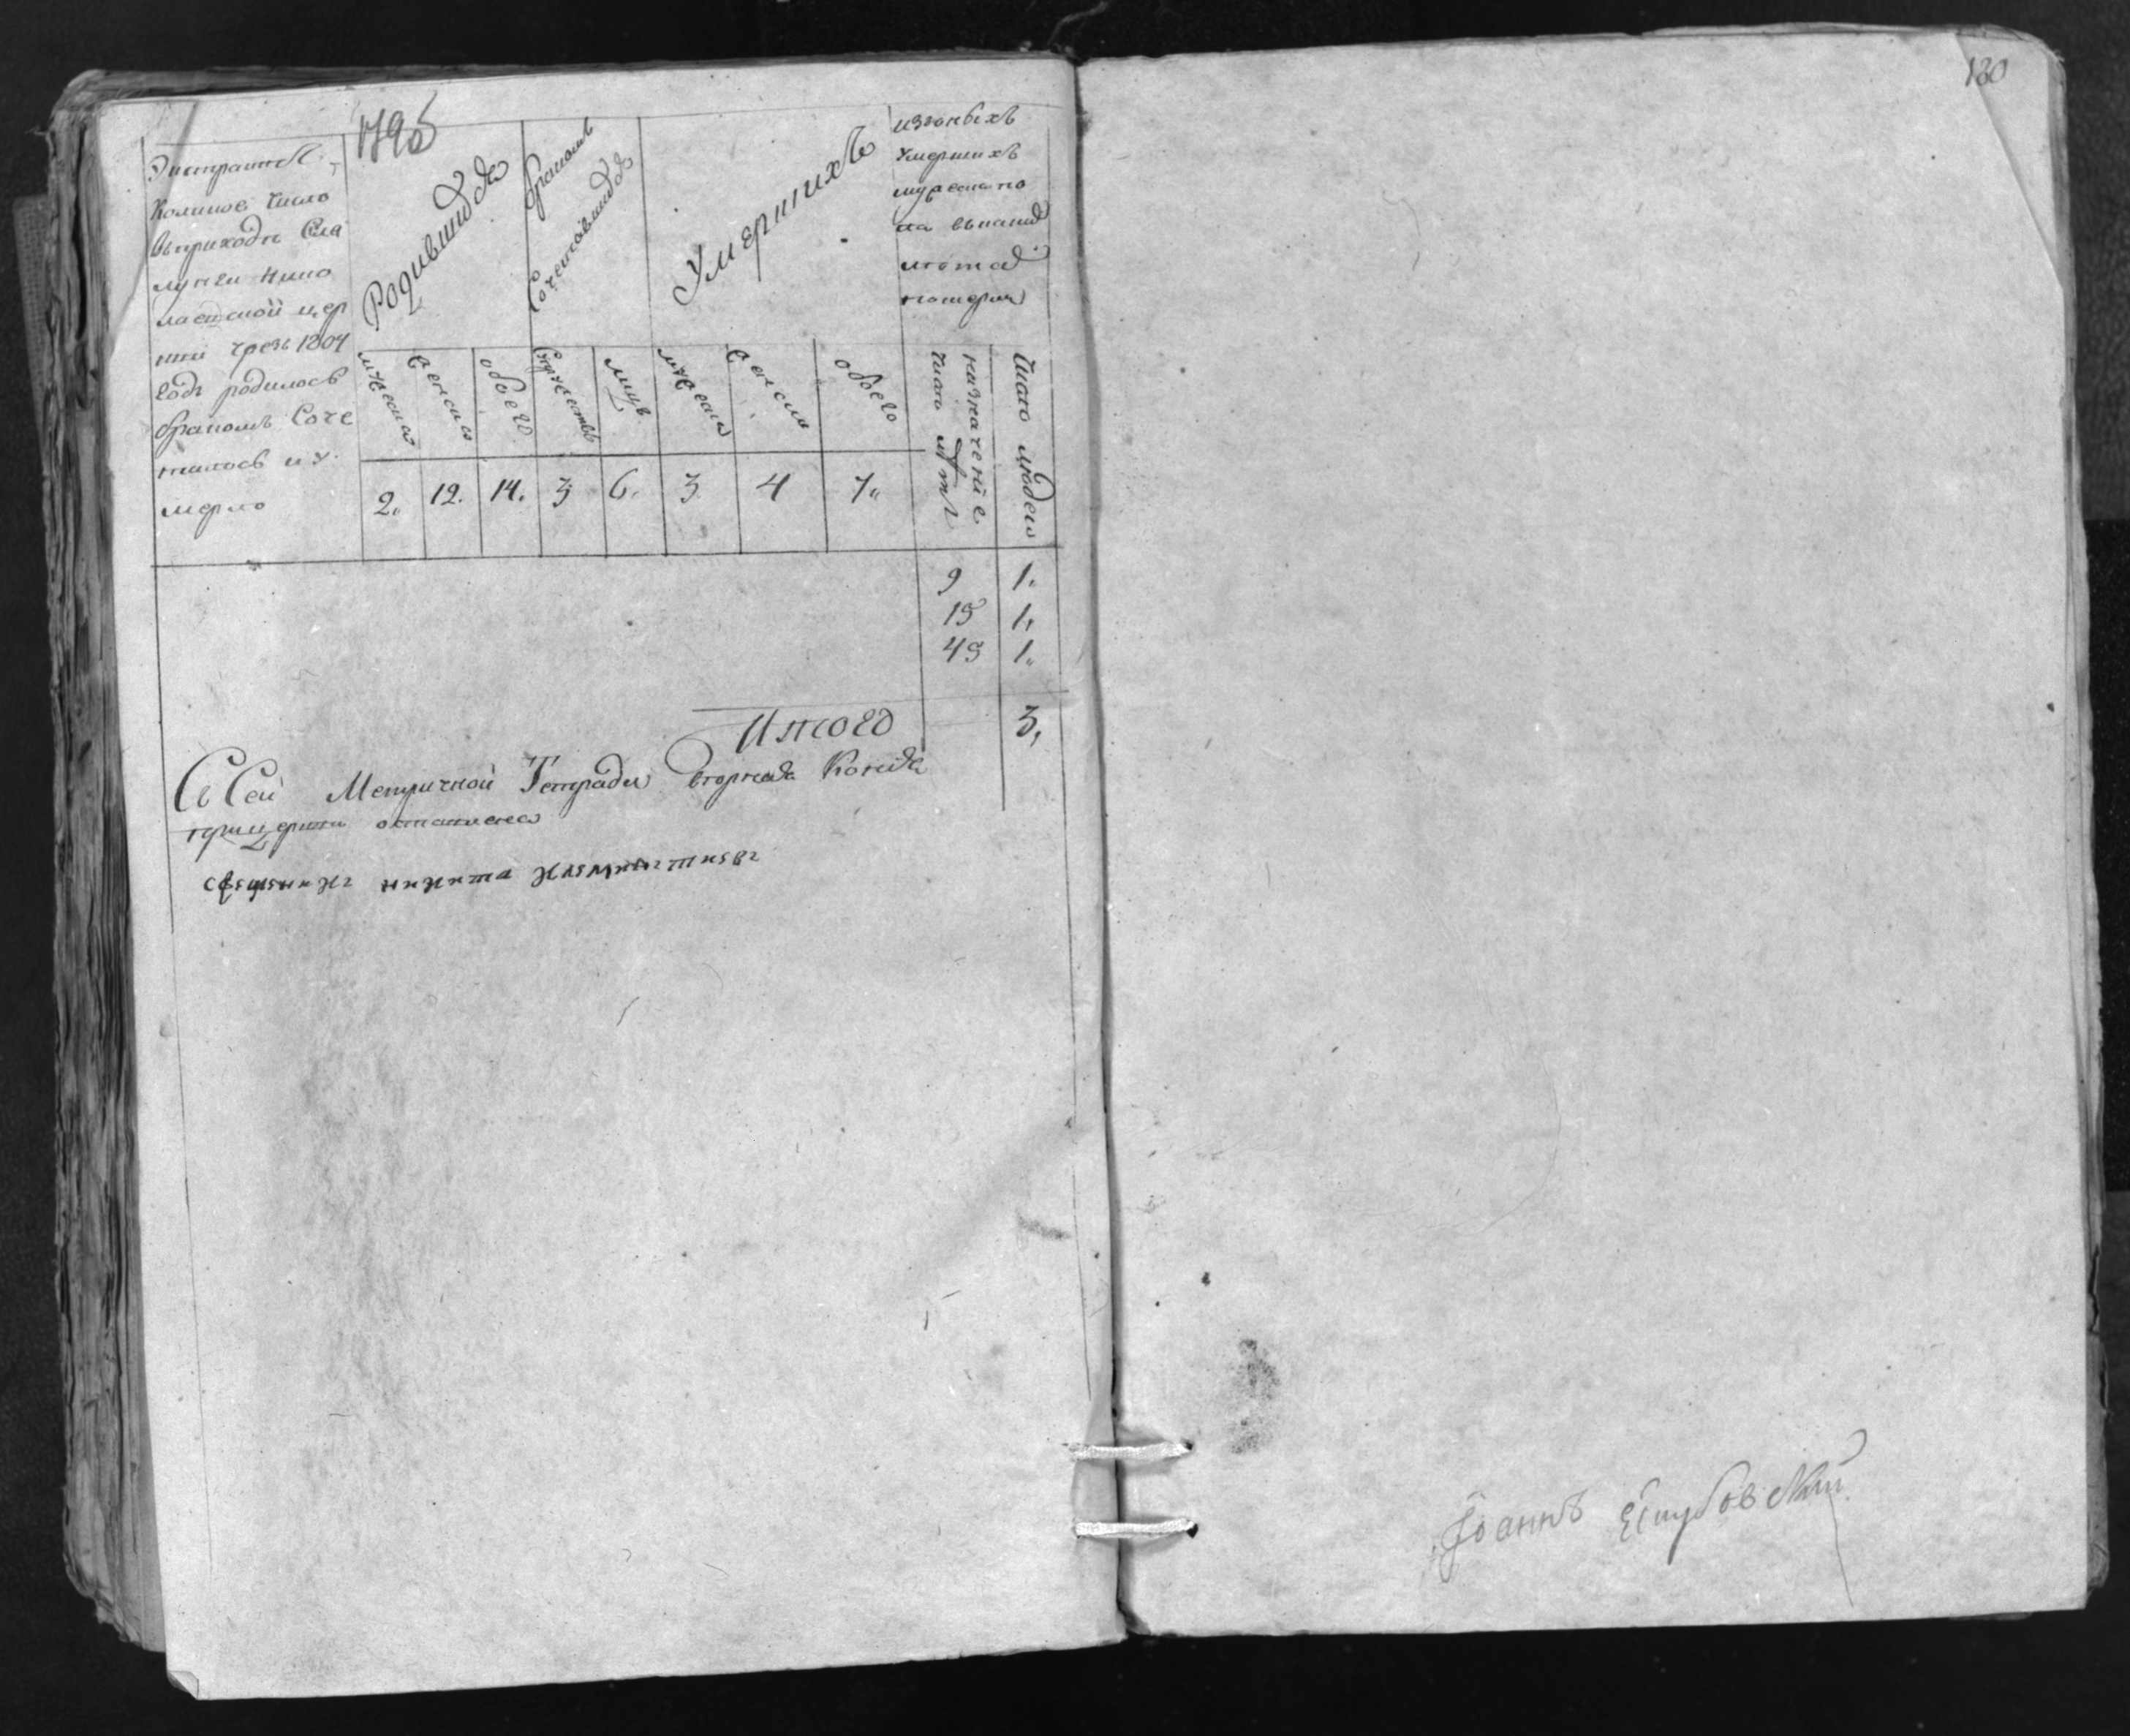 1795
130
Экстрактъ
Коликое число
въ приходѣ Сла
лунеи Нико
лаевской цер
кви чрезъ 1804
годъ родилось
бракомъ Соче
талось и У
мерло
Родившихся
бракомъ
Сочетавшихся
Умершихъ
изъ оныхъ
Умершихъ
мужеска по
ла
мужеска
женска
обоего
Супружествъ
лицъ
мужеска
женска
обоего
Число лѣтъ
назначение
Число людей
2. 12. 14. 3 6. 3 4 7.
9 1.
15 1.
45 1.
Итого 3.
Съ Сей Метричной Тетради вторная Копия
при церкви оставлена
священникъ никита
Іоаннъ